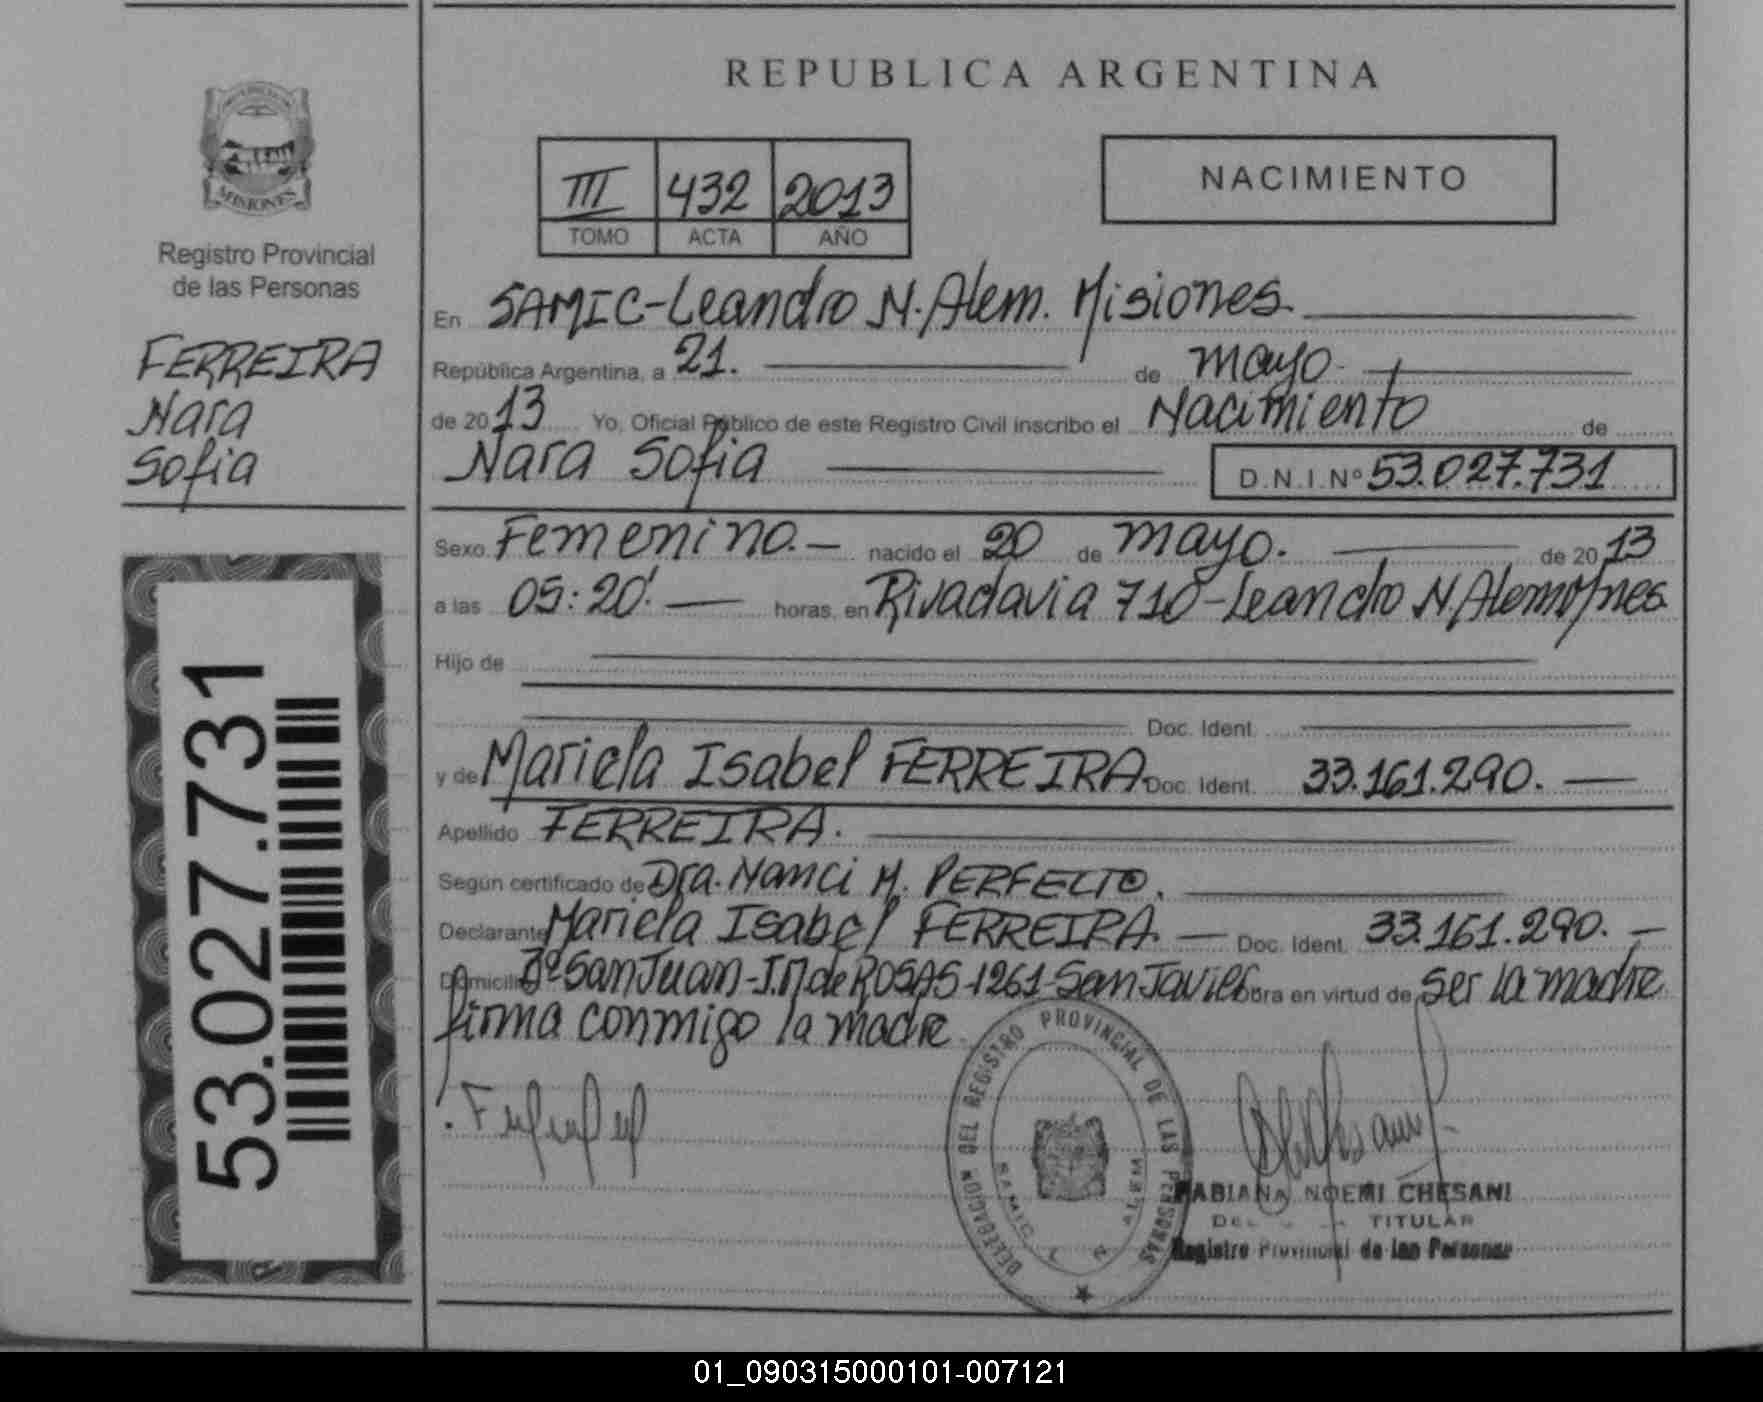 REPUBLICA ARGENTINA
MISIONES
Registro Provincial
de las Personas
FERREIRA
Nara
Sofia
53.027.731
III 432 2013
TOMO ACTA AÑO
NACIMIENTO
En SAMIC-Leandro N. Alem. Misiones
República Argentina, a 21. de mayo
de 2013 Yo, Oficial Público de este Registro Civil inscribo el Nacimiento de
Nara Sofia D.N.I.Nº 53.027.731
Sexo Femenino.- nacido el 20 de mayo. de 2013
a las 05:20'. horas, en Rivadavia 710-Leandro N. Alem
Hijo de
Doc. Ident.
y de Mariela Isabel FERREIRA Doc. Ident. 33.161.290.
Apellido FERREIRA.
Según certificado de Dra. Nanci M. PERFECTO.
Declarante Mariela Isabel FERREIRA. Doc. Ident. 33.161.290.
Domicilio San Juan-J.M de ROSAS-1261-San Javier Obra en virtud de ser la madre
firma conmigo la madre
DELEGACION DEL REGISTRO PROVINCIAL DE LAS PERSONAS
SAMIC L N ALEM
FABIANA NOEMI CHESANI
TITULAR
Registro Provincial de las Personas
01_090315000101-007121